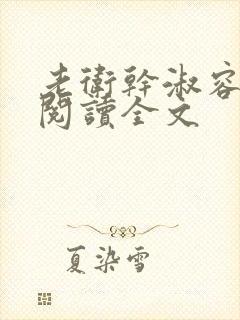 老衛幹淑容
閱讀全文
夏染雪